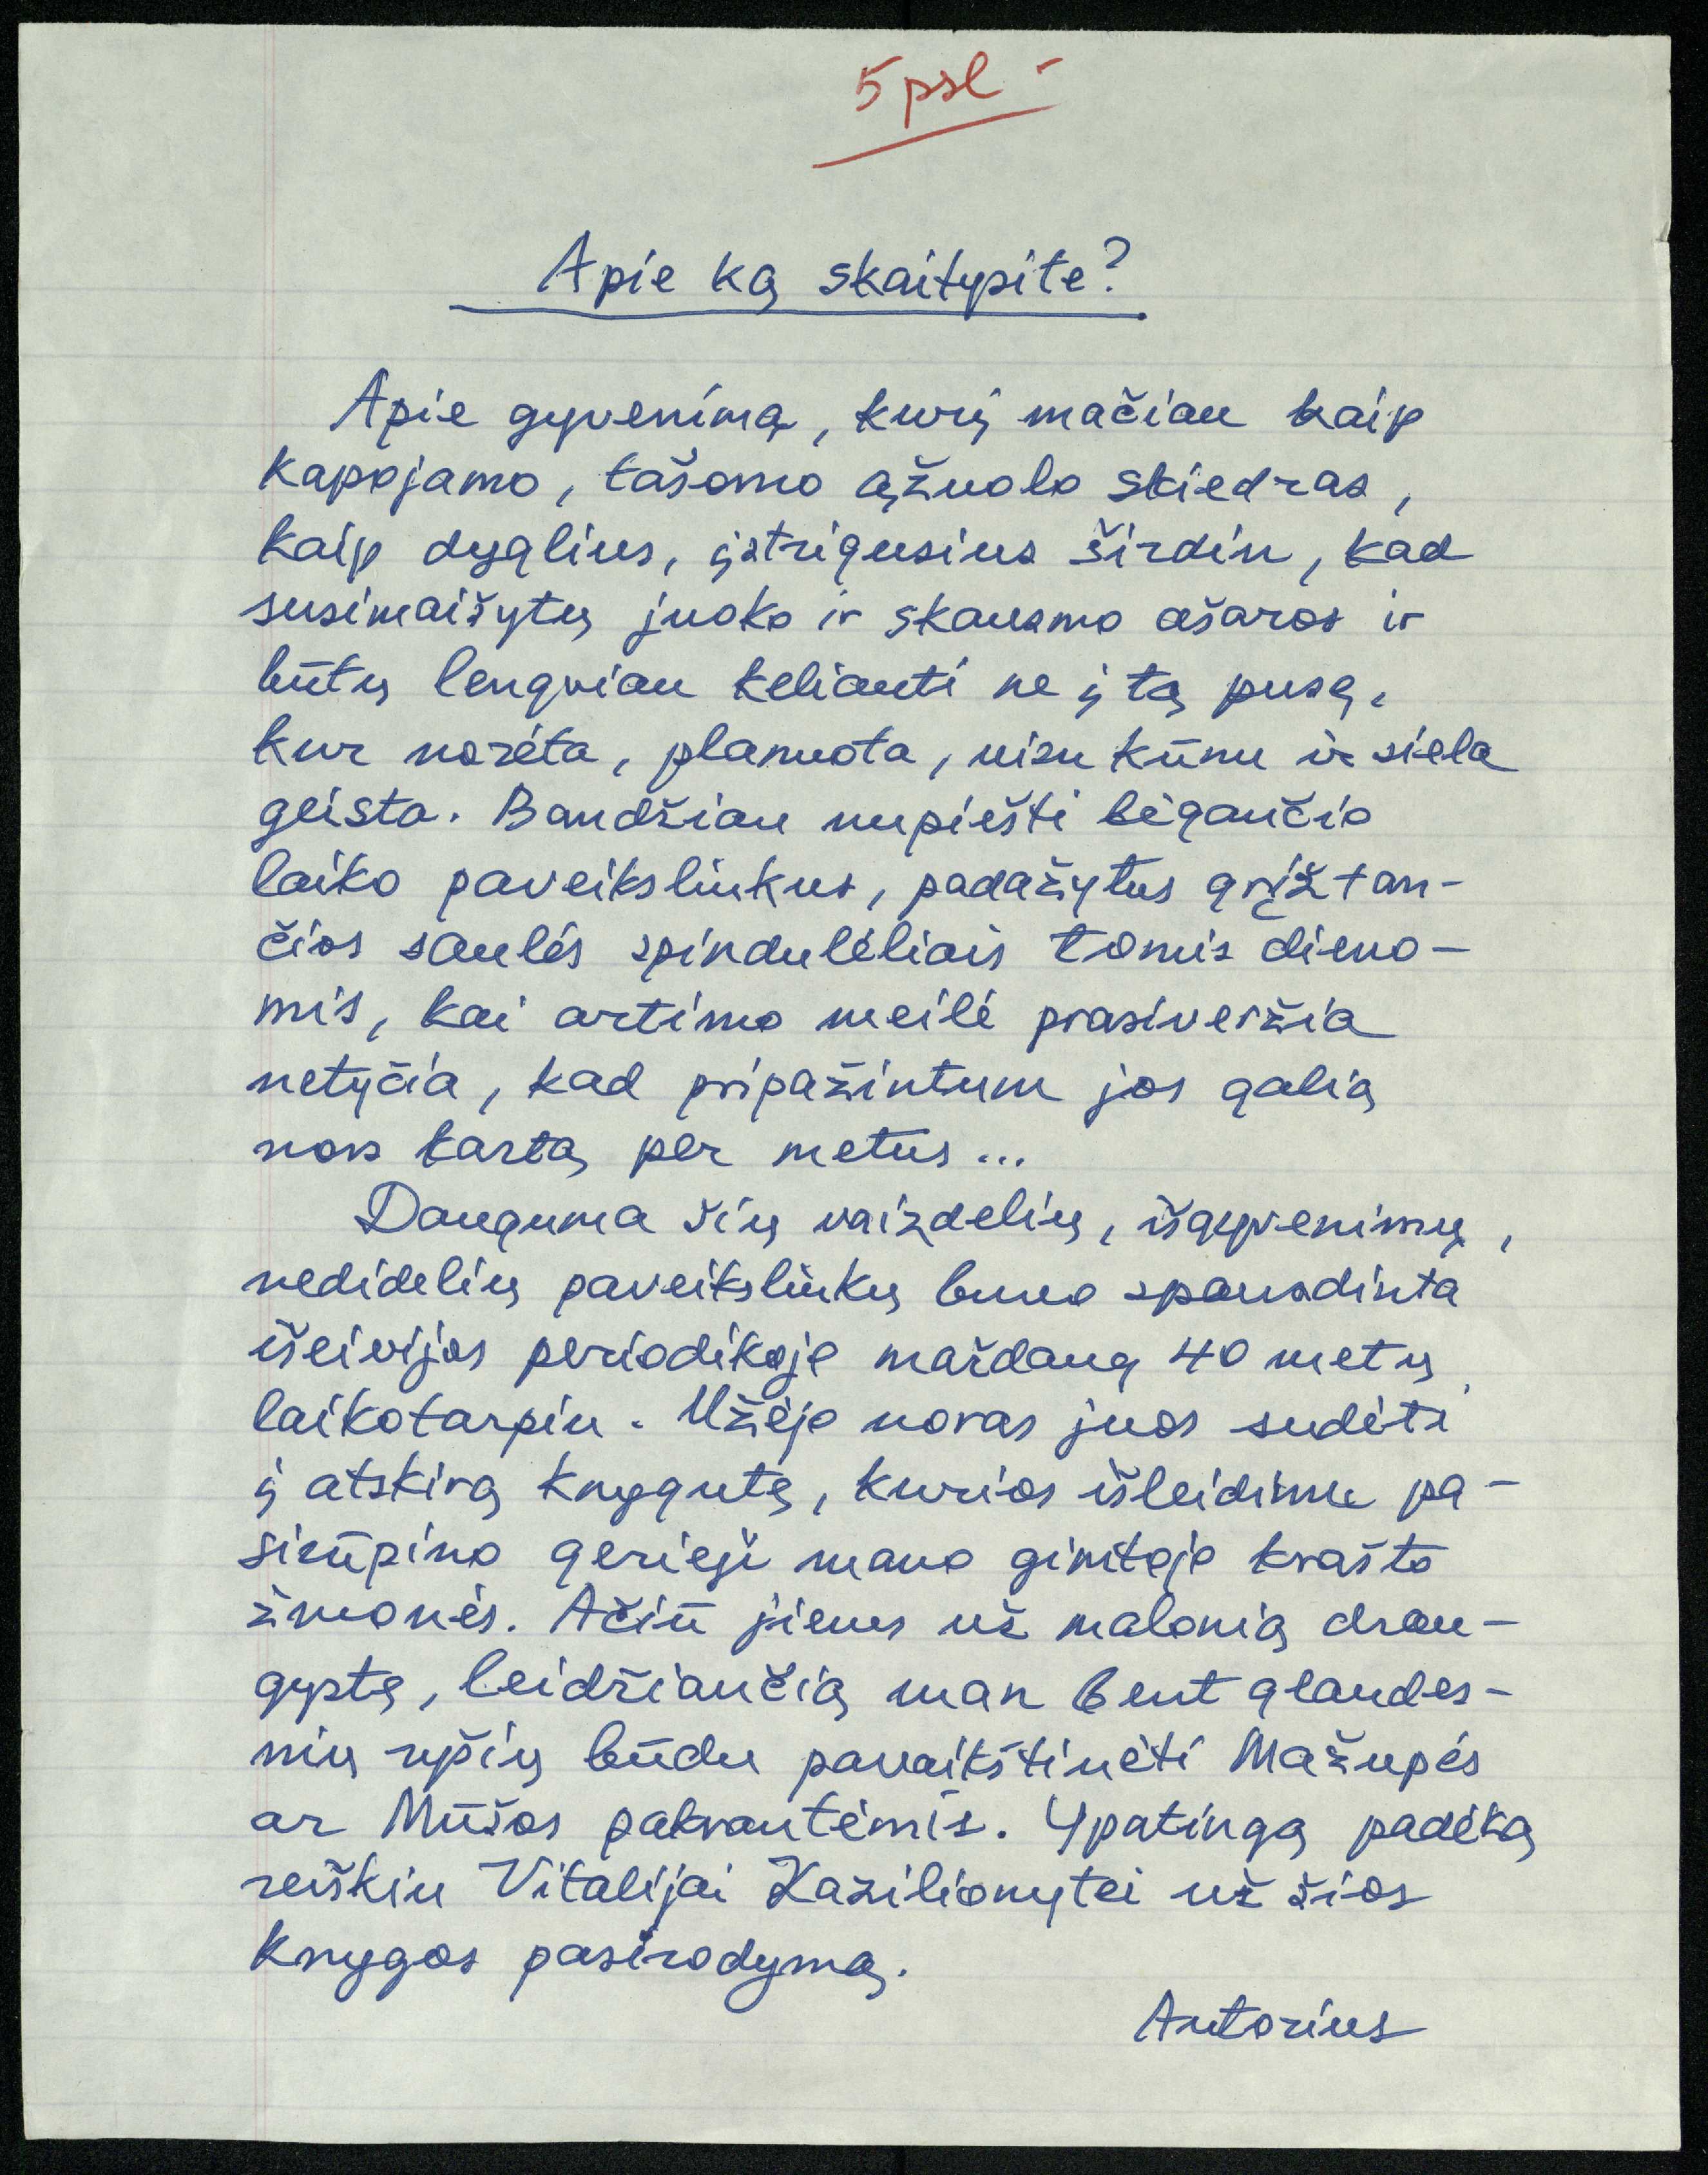 5 psl -
Apie ką skaitysite?
Apie gyvenimą, kurį mačiau kaip
kapojamo, tašomo ąžuolo skiedras,
kaip dyglius, įstrigusius širdin, kad
susimaišytų juoko ir skausmo ašaros ir
būtų lengviau keliauti ne į tą pusę,
kur norėta, planuota, visu kūnu ir siela
geista. Bandžiau nupiešti bėgančio
laiko paveikslinkus, padažytus grįžtan-
čios saulės spindulėliais tomis dieno-
mis, kai artimo meilė prasiveržia
netyčia, kad pripažintum jos galią
nors kartą per metus...
Dauguma šių vaizdelių, išgyvenimų,
nedidelių paveikslinkų buvo spausdinta
išeivijos periodikoje maždaug 40 metų
laikotarpiu. Užėjo noras juos sudėti
į atskirą knygutę, kurios išleidimu pa-
sirūpino gerieji mano gimtojo krašto
žmonės. Ačiū jiems už malonią drau-
gystę, leidžiančią man bent glaudes-
nių ryšių būdu pavaikštinėti Mažupės
ar Mūšos pakrantėmis. Ypatingą padėką
reiškiu Vitalijai Kazilionytei už šios
knygos pasirodymą.
Autorius